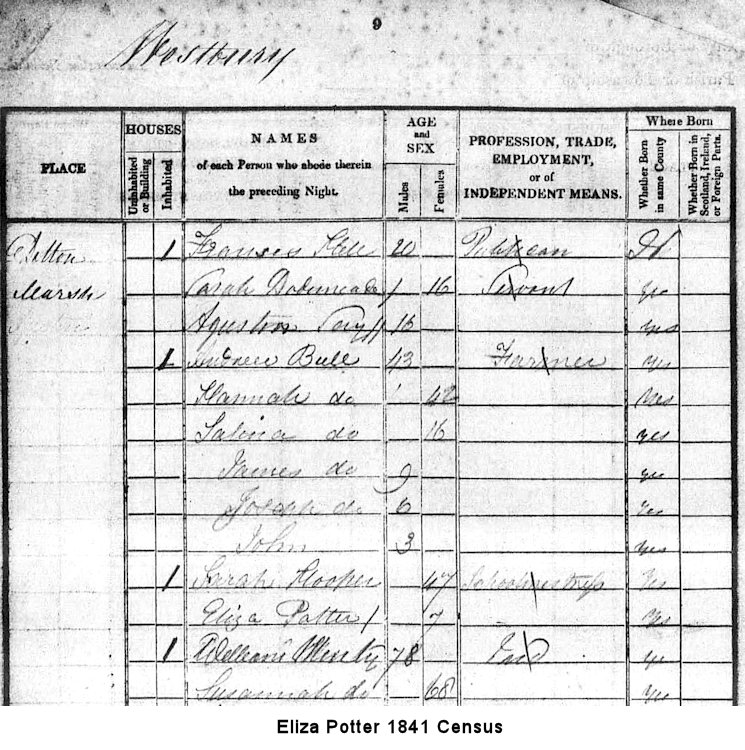 9
Westbury
PLACE
HOUSES
Uninhabited or Building
Inhabited
NAMES
of each Person who abode therein
the preceding Night.
AGE
and
SEX
Males
Females
PROFESSION, TRADE,
EMPLOYMENT,
or of
INDEPENDENT MEANS.
Where Born
Whether Born in same County
Whether Born in Scotland, Ireland, or Foreign Parts.
Dilton 1 20 Publican
Marsh Sarah 16 Servant yes
16 yes
1 Bull 43 Farmer yes
Hannah do yes
Salina do 16 yes
James do 9 yes
Joseph do 6 yes
John 3 yes
1 Sarah Hooper 47 Schoolmistress yes
Eliza Potter 7 yes
1 William 78 yes
Susannah do 68 yes
Eliza Potter 1841 Census